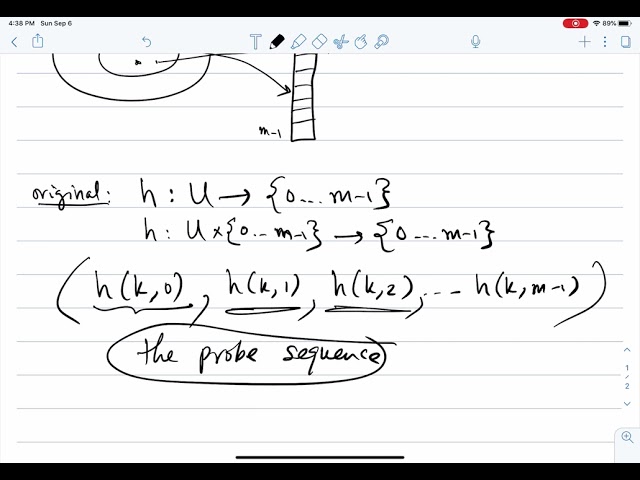 4:38 PM Sun Sep 6
89%
T
m-1
original: h : U → {0...m-1}
h : U×{0..m-1} → {0...m-1}
(h(k,0), h(k,1), h(k,2), ... h(k,m-1))
the probe sequence
1
/
2